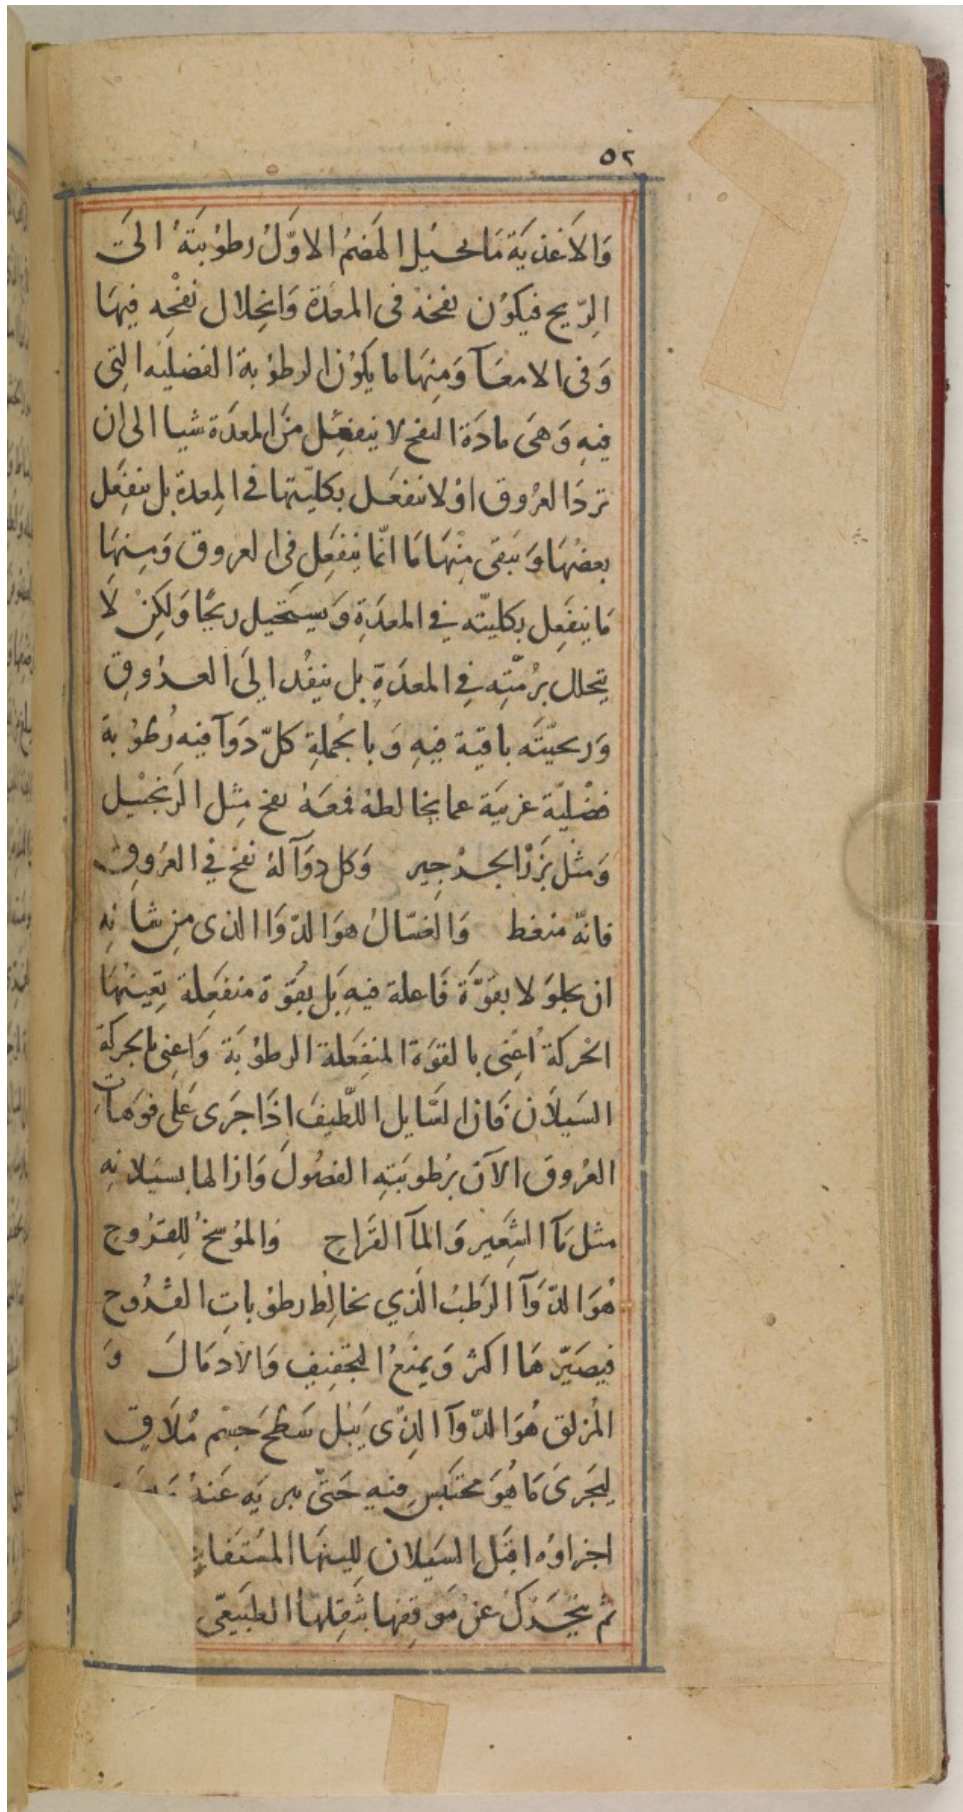 ٥٢
وَالاَغذيَة مَا يحيُل الهَضمُ الاوَّلُ رطوُبتَهُ الىَ
الرِّيح فيكوُن نفخهُ فى المعدَة وَانحِلال نفخْه فِيهَا
وَفى الامعَآ وَمنِهَا ما يكوُن الرطوُبة الفضليَه التِى
فيِهِ وَهىَ مادَة النفخ لا ينفعِل مِنَ المعدَة شيا الى ان
تردَ العرُوق اوْ لا تنفعَل بكليّتها فى المِعدة بل ينفعَل
بعضُهَا وَيَبقى مِنْهَا مَا انّما ينفعَِل فى العروق وَمِنهَا
مَا ينفَعِل بكليتّه فى المعدَةِ وَيسَتحيل ريحًا وَلكِنْ لَا
يتحلل برُمّتِه فِي المعدَةِ بل ينفُد الَى العرُوقِ
وَريحيّتَه باقية فيِهِ وَبالجُملةِ كلّ دَوَآ فيِه رُطوُبة
فضْليّة غربيَة عما يخالطهُ فمعَهُ نفخ مثِل الزنجبْيل
وَمثْل بَزْر الجرْجِير وَكل دوَآ لهُ نفخ في العرُوقِ
فانّه منغط وَالغسّالُ هوَ الدّوَا الذى مِن شانِهِ
ان يجلوَ لا بقوَّة فَاعلة فيِهِ بَل بقُوّة منفعَلة تعِينهُا
الحركةُ اُعِنى بالقوَة المنِفعَلة الرطوُبَة وَاعِنى بالحركةِ
السَيلاَن فَان السَّايل اللّطيفَ اذَا جَرى عَلى فوَهاَتِ
العرُوق الآن برُطوبتِهِ الفضُولَ وَازالها بسيَلانِهِ
مثل مَآ الشَعِير وَالمآ القرَاحِ وَالموُسخُ للِقرُوحِ
هُوَ الدّوَآ الرَطبُ الّذي يخالِطُ رطوُباتِ القرُوح
فيصَيّرهَا اكثر وَيمنَعُ التجَفِيف وَالادمَالَ وَ
المُزلق هُوَ الدّوآ الذِّى يَبُل سَطحَ جسِْم مُلَاقٍ
لِمَجرىَ مَا هُوَ محَتبَس فِيهِ حَتىّ يبريَه عَنهُ
اجزاوُه اقبَل السَيلان لِلِينهَا المسُتفا
ثُم يتحَرّك عَن مَوضعِها بثقِلها الطبيَعىّ